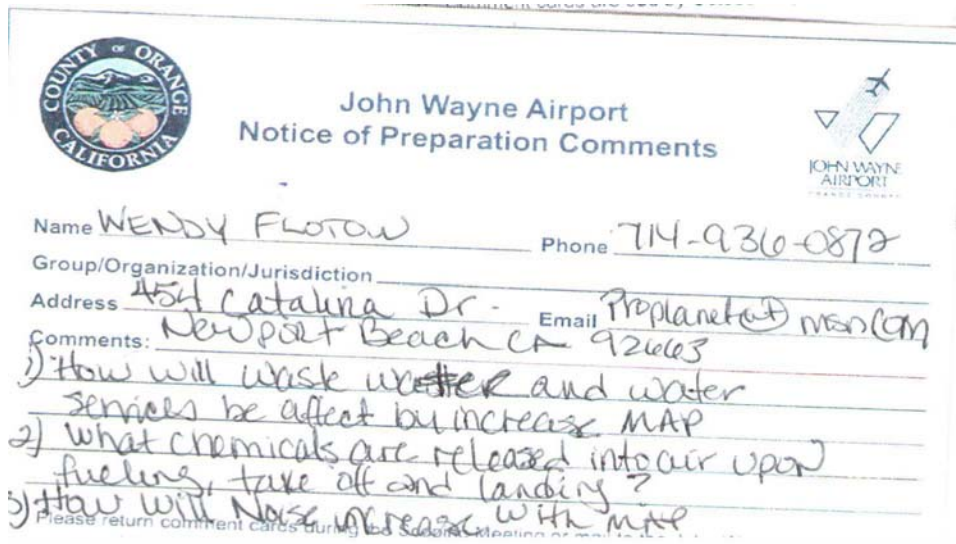 COUNTY OF ORANGE
CALIFORNIA
John Wayne Airport
Notice of Preparation Comments
JOHN WAYNE
AIRPORT
ORANGE COUNTY
Name WENDY FLOTOW Phone 714-936-0872
Group/Organization/Jurisdiction
Address 454 Catalina Dr. Email Proplanet@msn.com
Newport Beach CA 92663
Comments:
1) How will waste water and water
services be affect by increase MAP
2) What chemicals are released into air upon
fueling, take off and landing?
3) How will Noise increase with MAP
Please return comment cards during the Scoping Meeting or mail to the